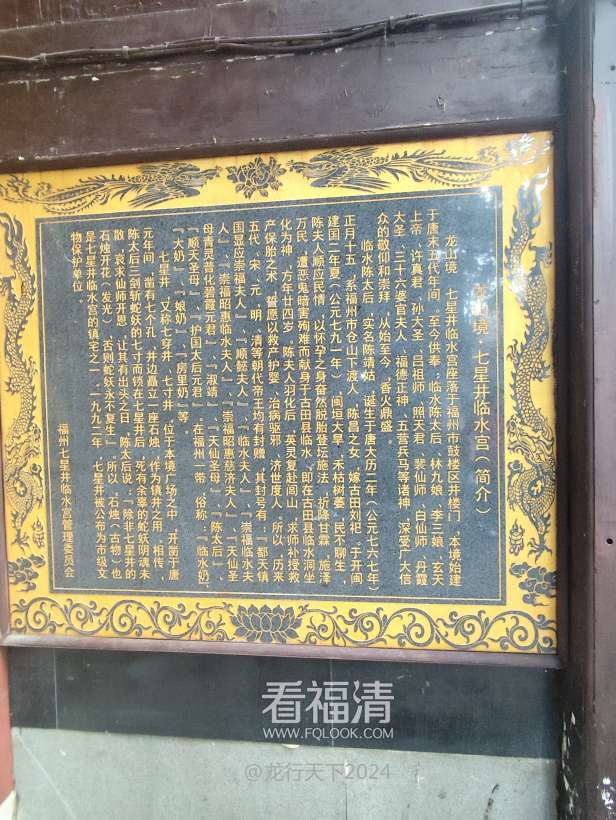 龙山境·七星井临水宫（简介）
龙山境　七星井临水宫座落于福州市鼓楼区井楼门，本境始建
于唐末五代年间。至今供奉：临水陈太后、林九娘、李三娘、玄天
上帝、许真君、孙大圣、吕祖师、照天君、裴仙师、白仙师、丹霞
大圣、三十六婆官夫人、福德正神、五营兵马等诸神，深受广大信
众的敬仰和崇拜，从始至今，香火鼎盛。
临水陈太后，实名陈靖姑，诞生于唐大历二年（公元七六七年）
正月十五，系福州市仓山下渡人，陈昌之女，嫁古田刘杞，于开闽
建国二年夏（公元七九一年），闽垣大旱，禾枯树萎，民不聊生，
陈夫人顺应民情，以怀孕之身毅然脱胎登坛施法，祈降甘霖，施泽
万民，遭恶鬼暗害殉难而献身于古田县临水，即在古田县临水洞坐
化为神，方年廿四岁。陈夫人羽化后，英灵复赴闾山，求师补授救
产保胎之术，誓愿以救产护婴、治病驱邪、济世度人，所以，历来
五代、宋、元、明、清等朝代帝王均有封赠，其封号有：「都天镇
国显应崇福夫人」、「顺懿夫人」、「临水夫人」、「崇福临水夫
人」、「崇福昭惠临水夫人」、「崇福昭惠慈济夫人」、「天仙圣
母青灵普化碧霞元君」、「淑靖」、「天仙圣母」、「陈太后」、
「顺天圣母」、「护国太后元君」，在福州一带，俗称：「临水奶」、
「大奶」、「娘奶」、「房里奶」等。
七星井，又称七穿井、七寸井，位于本境广场之中，开凿于唐
元年间，凿有七个孔，井边矗立一座石烛，作为镇井之用。相传，
陈太后三剑斩蛇妖的七寸而锁在七星井后，死有余辜的蛇妖阴魂未
散，哀求仙师开恩，让其有出头之日，陈太后说：「除非七星井的
石烛开花（发光），否则蛇妖永不复生」。所以，石烛（古物）也
是七星井临水宫的镇宅之一，一九九二年，七星井被公布为市级文
物保护单位。
福州七星井临水宫管理委员会
看福清
WWW.FQLOOK.COM
@龙行天下2024